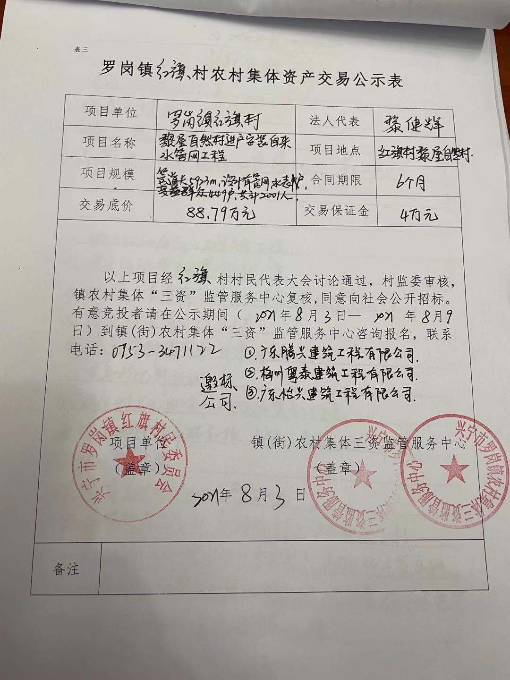 表三
罗岗镇红旗村农村集体资产交易公示表
项目单位 罗岗镇红旗村 法人代表 黎健辉
项目名称 黎屋自然村进户安装自来水管网工程 项目地点 红旗村黎屋自然村
项目规模 管道长5923m, 受益群众449户, 共计2001人. 合同期限 6个月
交易底价 88.79万元 交易保证金 4万元
以上项目经红旗村村民代表大会讨论通过，村监委审核，
镇农村集体“三资”监管服务中心复核,同意向社会公开招标。
有意竞投者请在公示期间（2021年8月3日— 2021年8月9
日）到镇(街)农村集体“三资”监管服务中心咨询报名，联系
电话：0753-3471122 ①.广东腾兴建筑工程有限公司.
邀标公司. ②.梅州粤泰建筑工程有限公司.
③.广东怡兴建筑工程有限公司.
项目单位 镇(街)农村集体三资监管服务中心
（盖章） （盖章）
2021年8月3日
兴宁市罗岗镇红旗村民委员会
兴宁市罗岗镇农村集体三资监管服务中心
兴宁市罗岗镇农村集体三资监管服务中心
备注